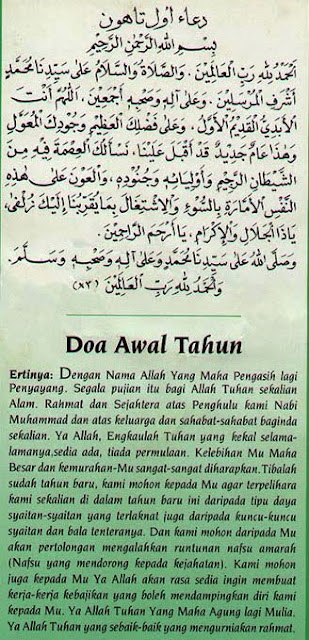 دعاء اول تاهون
بِسْمِ اللهِ الرَّحْمٰنِ الرَّحِيْمِ
اَلْحَمْدُ لِلّٰهِ رَبِّ الْعَالَمِيْنَ. وَالصَّلَاةُ وَالسَّلَامُ عَلَى سَيِّدِنَا مُحَمَّدٍ
أَشْرَفِ الْمُرْسَلِيْنَ. وَعَلَى آلِهِ وَصَحْبِهِ أَجْمَعِيْنَ. اَللّٰهُمَّ أَنْتَ
الْأَبَدِيُّ الْقَدِيْمُ الْأَوَّلُ. وَعَلَى فَضْلِكَ الْعَظِيْمِ وَجُوْدِكَ الْمُعَوَّلِ
وَهٰذَا عَامٌ جَدِيْدٌ قَدْ أَقْبَلَ عَلَيْنَا. نَسْأَلُكَ الْعِصْمَةَ فِيْهِ مِنَ
الشَّيْطَانِ الرَّجِيْمِ وَأَوْلِيَائِهِ وَجُنُوْدِهِ. وَالْعَوْنَ عَلَى هٰذِهِ
النَّفْسِ الْأَمَّارَةِ بِالسُّوْءِ وَالْاِشْتِغَالِ بِمَا يُقَرِّبُنَا إِلَيْكَ زُلْفَى.
يَاذَا الْجَلَالِ وَالْإِكْرَامِ. يَا أَرْحَمَ الرَّاحِمِيْنَ.
وَصَلَّى اللهُ عَلَى سَيِّدِنَا مُحَمَّدٍ وَعَلَى آلِهِ وَصَحْبِهِ وَسَلَّمَ.
وَالْحَمْدُ لِلّٰهِ رَبِّ الْعَالَمِيْنَ (٣×)
Doa Awal Tahun
Ertinya: Dengan Nama Allah Yang Maha Pengasih lagi
Penyayang. Segala pujian itu bagi Allah Tuhan sekalian
Alam. Rahmat dan Sejahtera atas Penghulu kami Nabi
Muhammad dan atas keluarga dan sahabat-sahabat baginda
sekalian. Ya Allah, Engkaulah Tuhan yang kekal selama-
lamanya,sedia ada, tiada permulaan. Kelebihan Mu Maha
Besar dan kemurahan-Mu sangat-sangat diharapkan.Tibalah
sudah tahun baru, kami mohon kepada Mu agar terpelihara
kami sekalian di dalam tahun baru ini daripada tipu daya
syaitan-syaitan yang terlaknat juga daripada kuncu-kuncu
syaitan dan bala tenteranya. Dan kami mohon daripada Mu
akan pertolongan mengalahkan runtunan nafsu amarah
(Nafsu yang mendorong kepada kejahatan). Kami mohon
juga kepada Mu Ya Allah akan rasa sedia ingin membuat
kerja-kerja kebajikan yang boleh mendampingkan diri kami
kepada Mu. Ya Allah Tuhan Yang Maha Agung lagi Mulia.
Ya Allah Tuhan yang sebaik-baik yang mengurniakan rahmat.